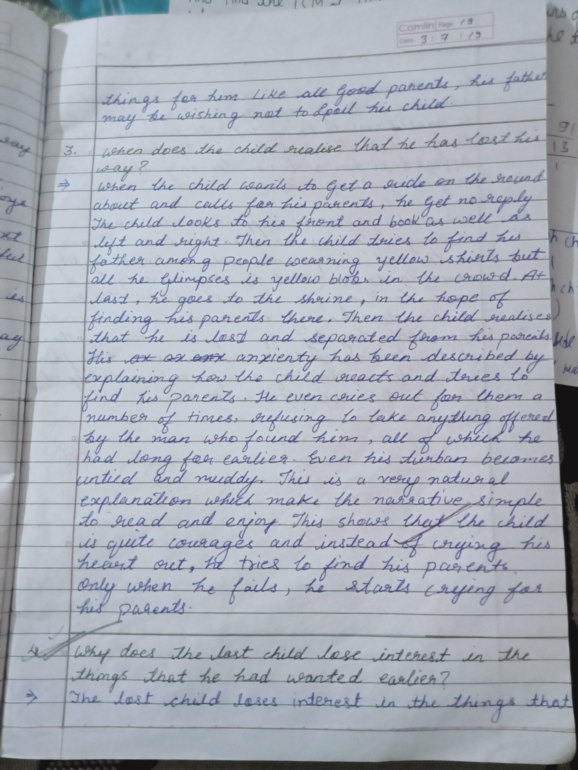 Camlin Page 19
Date 3 7 19
things for him like all Good parents, his father
may be wishing not to Spoil his child
3. when does the child realise that he has lost his
way?
⇒ when the child wants to Get a ride on the round
about and calls for his parents, he Get no reply
The child looks to his front and book as well as
left and right Then the child tries to find his
father among people wearning yellow shirts but
all he Glimpses is yellow blobs in the crowd. At
last, he goes to the shrine, in the hope of
finding his parents there. Then the child realises
that he is lost and separated from his parents
His anxienty has been described by
explaining how the child reacts and tries to
find his parents. He even cries out for them a
number of times, refusing to take anything offered
by the man who found him, all of which he
had long for earlier. Even his turban becomes
untied and muddy. This is a very natural
explanation which make the narrative simple
to read and enjoy This shows that the child
is quite courages and instead of crying his
heart out, he tries to find his parents
only when he fails, he starts crying for
his parents.
4. Why does the last child lose interest in the
things that he had wanted earlier?
⇒ The lost child loses interest in the things that